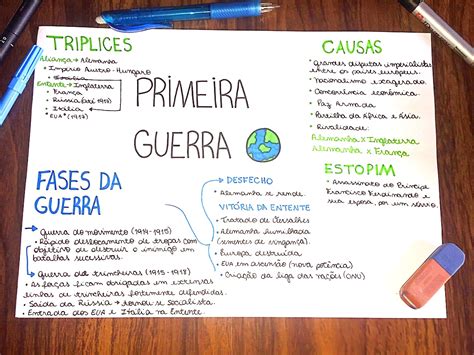 TRIPLICES
Aliança → Alemanha
• Império Austro-Húngaro
• Itália
Entente → Inglaterra
• França
• Rússia (até 1917)
• Itália
• EUA (1917)
PRIMEIRA
GUERRA
CAUSAS
• grandes disputas imperialistas
entre os países europeus.
• Nacionalismo exagerado.
• Concorrência econômica.
• Paz Armada
• Partilha da África e Ásia.
• Rivalidade:
Alemanha x Inglaterra
Alemanha x França.
ESTOPIM
• Assassinato do Príncipe
Francisco Ferdinando e
sua esposa, por um sérvio.
FASES DA
GUERRA
→ Guerra de movimento (1914-1915)
• Rápido deslocamento de tropas com
objetivo de destruir o inimigo em
batalhas sucessivas.
→ Guerra de trincheiras (1915-1918)
• As forças ficam obrigadas em extensas
linhas de trincheiras fortemente defendidas.
• Saída da Rússia → tornou-se socialista.
• Entrada dos EUA e Itália na Entente.
DESFECHO
• Alemanha se rende.
VITÓRIA DA ENTENTE
• Tratado de Versalhes
• Alemanha humilhada
(sementes de vingança).
• Europa destruída
• EUA em ascensão (nova potência)
• Criação da liga das nações (ONU)